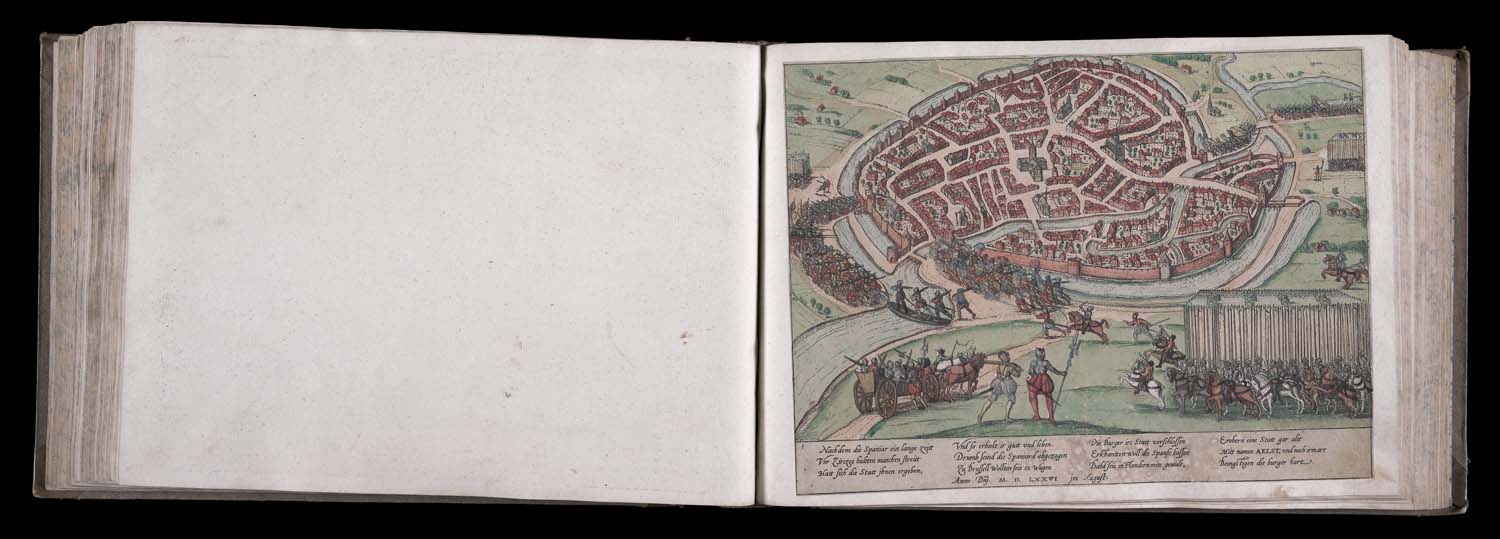 1
Nach dem die Spanier ein lange zeitt
Vor Zirczee hadten manchen streitt
Hatt sich die Statt ihnen ergeben,
Vnd so erhielt ir gutt vnd leben.
Drumb seind die Spaniard abgezogen
Zu Brussell Wolten sein es Wagen
Die Burger ire Statt verschlossen
Erkhanten woll die Spanse bossen
Bald sein in Flandern mitt gewalt,
Erobern eine Statt gar alt
Mitt namen AELST, vnd nach ermart
Beengstigen die burger hart
Anno Dni. M. D. LXXVI jm August.